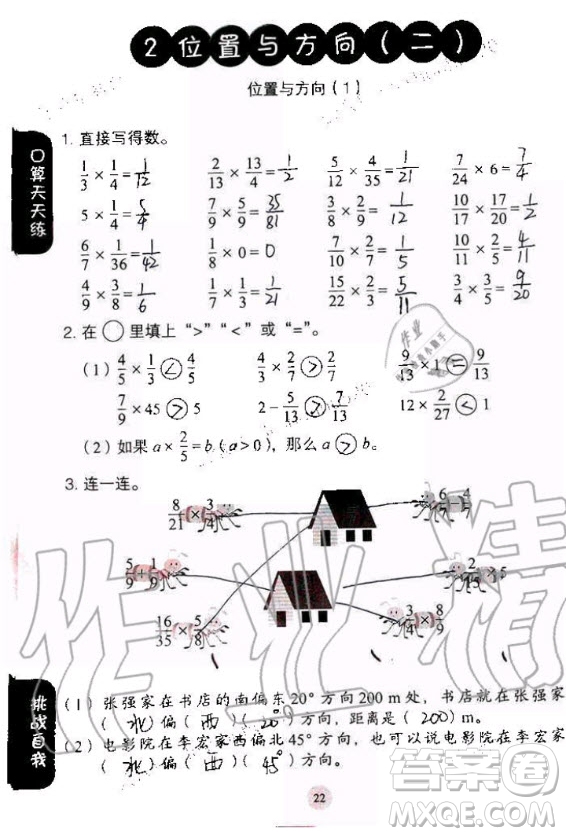 2 位置与方向(二)
位置与方向(1)
口算天天练
1. 直接写得数。
1/3 × 1/4 = 1/12 2/13 × 13/4 = 1/2 5/12 × 4/35 = 1/21 7/24 × 6 = 7/4
5 × 1/4 = 5/4 7/9 × 5/9 = 35/81 × = 1/12 10/17 × 17/20 = 1/2
6/7 × 1/36 = 1/42 1/8 × 0 = 0 7/10 × 2/7 = 1/5 10/11 × 2/5 = 4/11
4/9 × 3/8 = 1/6 1/7 × 1/3 = 1/21 15/22 × 2/3 = 5/11 3/4 × 3/5 = 9/20
2. 在 ○ 里填上“>”“<”或“=”。
(1) 4/5 × 1/3 < 4/5 4/3 × 2/7 > 2/7 9/13 × 1 = 9/13
7/9 × 45 > 5 2 - 5/13 > 7/13 12 × 2/27 < 1
(2) 如果 a × 2/5 = b (a > 0), 那么 a > b。
3. 连一连。
8/21 × 3/4 6/7 - 4/7
5/9 + 1/9 2/15 × 5
16/35 × 5/8 3/4 × 8/9
挑战自我
(1) 张强家在书店的南偏东20°方向200 m处, 书店在张强家
( 北 )偏( 西 )( 20° )方向, 距离是( 200 )m。
(2) 电影院在李宏家西偏北45°方向, 也可以说电影院在李宏家
( 北 )偏( 西 )( 45° )方向。
22
作业精
作业
答案圈
MXQE.COM